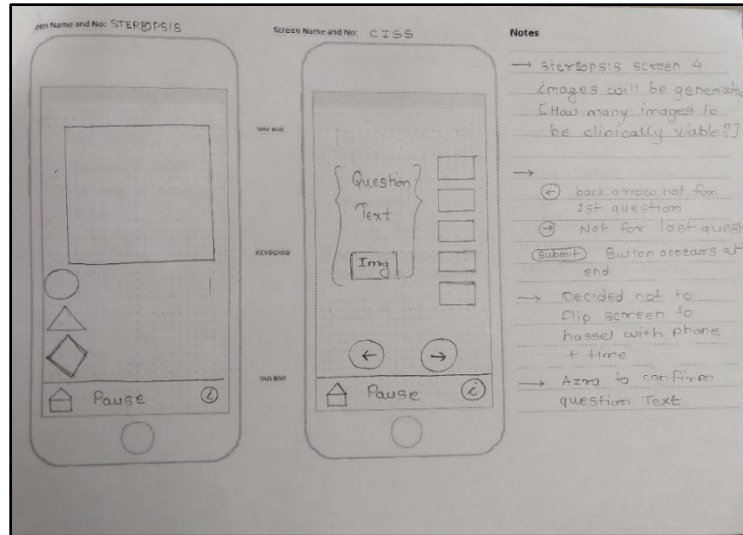 en Name and No: STEREOPSIS
Pause i
Screen Name and No: CISS
Question
Text
Img
← →
Pause i
NAV BAR
KEYBOARD
TAB BAR
Notes
→ Stereopsis screen 4
images will be generate
[How many images to
be clinically viable?]
→
← back arrow not for
1st question
→ Not for last quest
Submit Button appears at
end
→ Decided not to
flip screen to
hassel with phone
+ time
→ Azra to confirm
question Text